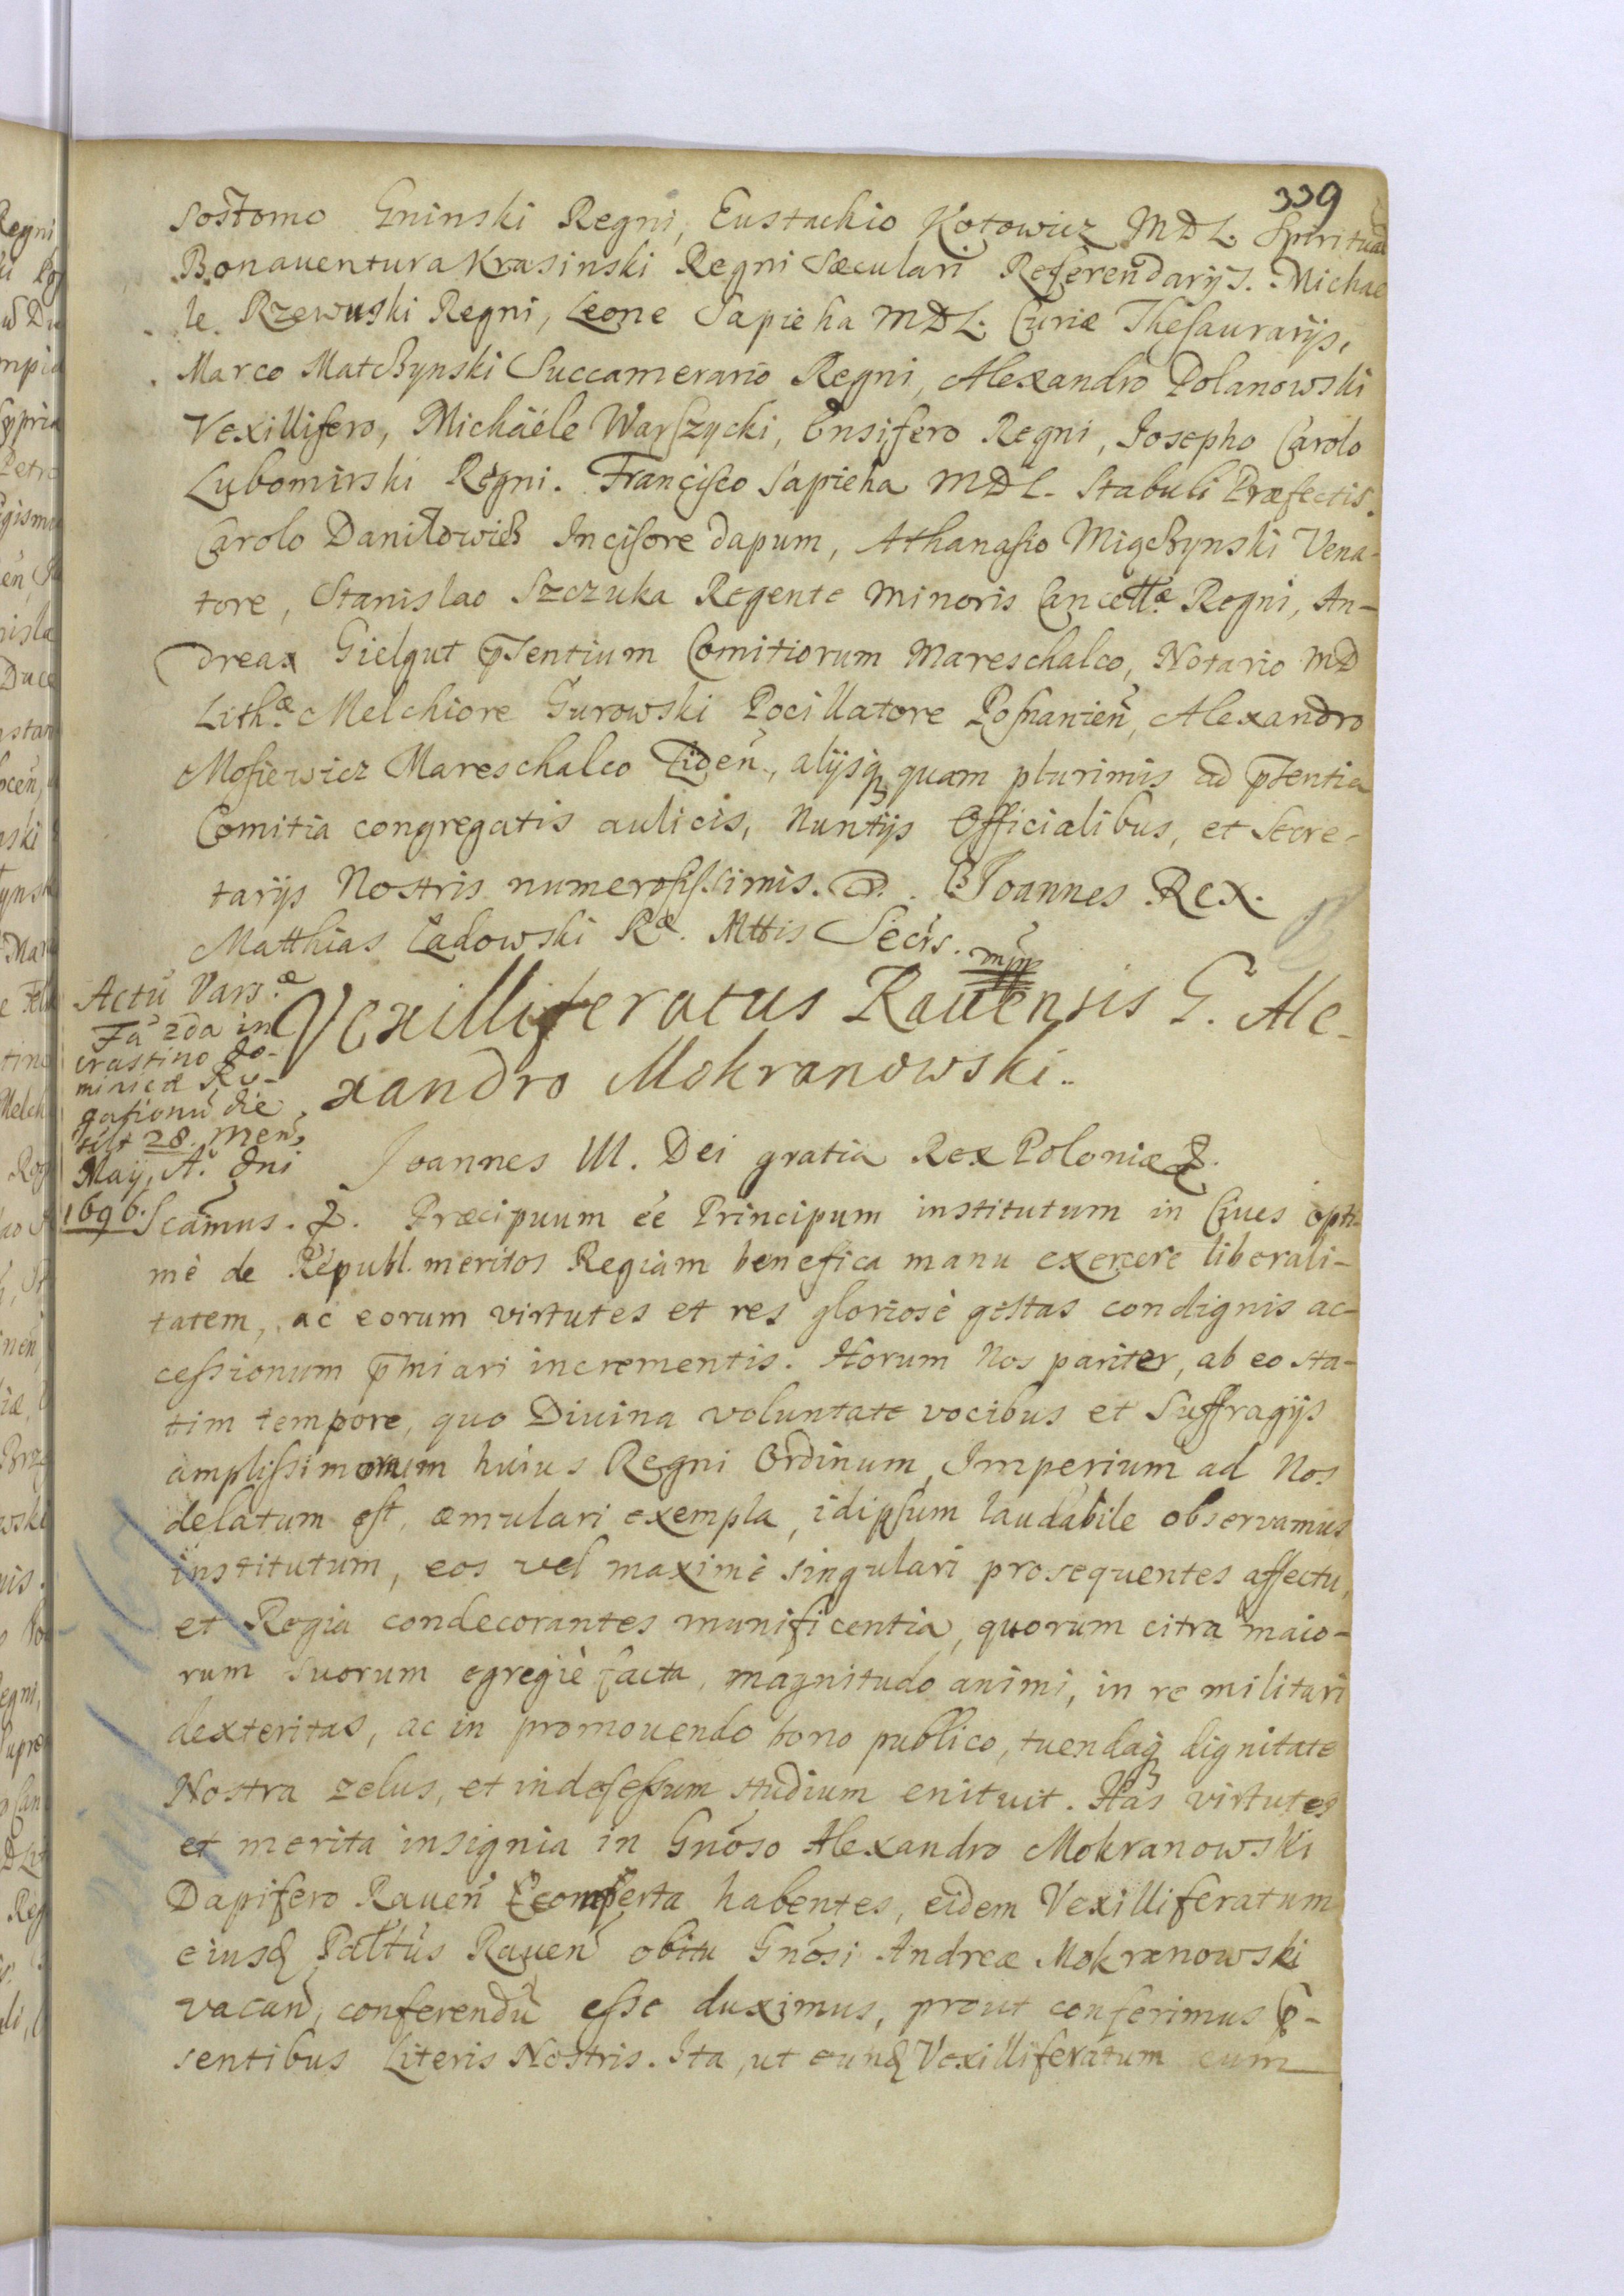 339
sostomo Gninski Regni, Eustachio Kotowicz MDL. Spiritual
Bonauentura Krasinski Regni Sæculari Referendarijs. Michae
le. Rzewuski Regni, Leone Sapieha MDL. Curiæ Thesaurarijs,
Marco Matczynski Succamerario Regni, Alexandro Polanowski
Vexillifero, Michaële Warszycki, Ensifero Regni, Josepho Carolo
Lubomirski Regni. Francisco Sapieha MDL. Stabuli Præfectis.
Carolo Daniłowicz Incisore dapum, Athanasio Miączynski Vena-
tore, Stanislao Szczuka Regente Minoris Cancellæ Regni, An-
dreax Gielgut p̃sentium Comitiorum Mareschalco, Notario MD
Lithæ. Melchiore Gurowski Pocillatore Posnanień, Alexandro
Mosiewicz Mareschalco Lideń, alijsq̨ quam plurimis ad p̃sentia
Comitia congregatis aulicis, Nuntijs Officialibus, et Secre-
tarijs Nostris numerosissimis. Joannes Rex.
Matthias Ładowski Ræ. Mttis Secrs. mp
Actũ Vars.æ
Fã 2da in
crastino Do-
minicæ Ro-
gationũ die
scilt 28. Mens̃
Maij, A. Dni
1696.
Vexilliferatus Rauensis G. Ale-
xandro Mokranowski.
Joannes III. Dei gratia Rex Poloniæ &.
Scãmus. &. Præcipuum ẽe Principum institutum in Ciues opti-
mè de Republ. meritos Regiam benefica manu exercere liberali-
tatem, ac eorum virtutes et res gloriosè gestas condignis ac-
cessionum p̃miari incrementis. Horum Nos pariter, ab eo sta-
tim tempore, quo Diuina voluntate vocibus et Suffragijs
amplissimorum huius Regni Ordinum, Imperium ad Nos
delatum est, æmulari exempla, idipsum laudabile observamus
institutum, eos vel maximè singulari prosequentes affectu,
et Regia condecorantes munificentia, quorum citra maio-
rum suorum egregiè facta, magnitudo animi, in re militari
dexteritas, ac in promouendo bono publico, tuendaq̨ dignitate
Nostra zelus, et indefessum studium enituit. Has virtutes
et merita insignia in Gnoso Alexandro Mokranowski
Dapifero Raueñ comperta habentes, eidem Vexilliferatum
eiusd Palt̃us Raueñ obitu Gnosi Andreæ Mokranowski
vacañ, conferendũ esse duximus, prout conferimus p̃-
sentibus Literis Nostris. Ita, ut eund Vexilliferatum eum